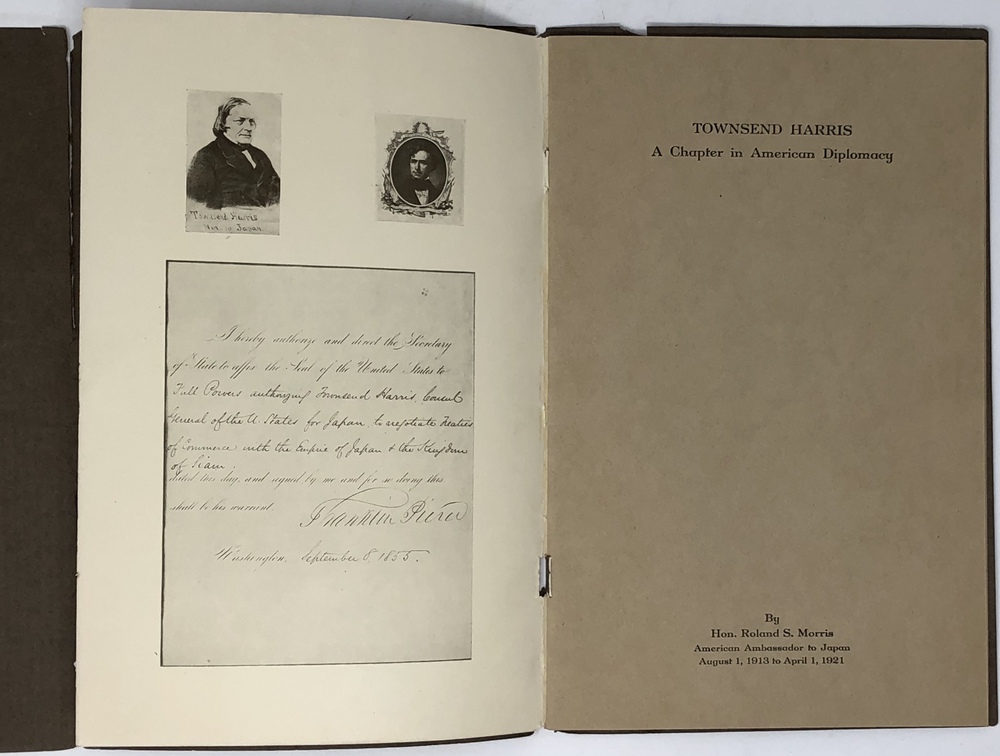 Townsend Harris
Min. in Japan.
I hereby authorize and direct the Secretary
of State to affix the Seal of the United States to
Full Powers, authorizing Townsend Harris, Consul
General of the U. States for Japan, to negotiate Treaties
of Commerce with the Empire of Japan & the Kingdom
of Siam.
dated this day, and signed by me and for so doing this
shall be his warrant.
Franklin Pierce
Washington, September 8, 1855.
TOWNSEND HARRIS
A Chapter in American Diplomacy
By
Hon. Roland S. Morris
American Ambassador to Japan
August 1, 1913 to April 1, 1921